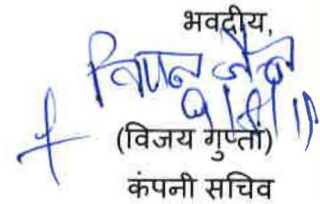 भवदीय,
(विजय गुप्ता)
कंपनी सचिव